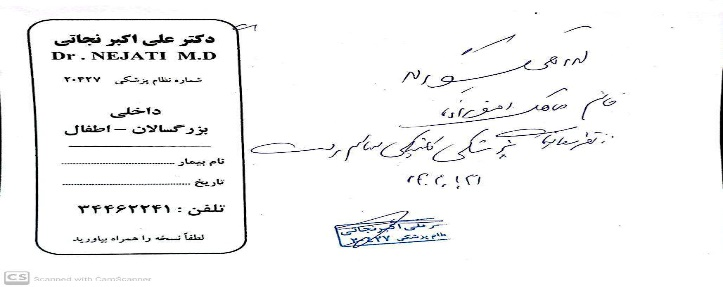 دکتر علی اکبر نجاتی
Dr . NEJATI M.D
شماره نظام پزشکی ۲۰۴۲۷
داخلی
بزرگسالان – اطفال
نام بیمار
تاریخ
تلفن : ۳۴۴۶۲۲۴۱
لطفاً نسخه را همراه بیاورید
گواهی میشود
خانم
از نظر معاینات پزشکی کلینیکی سالم است
دکتر علی اکبر نجاتی
نظام پزشکی ۲۰۴۲۷
CS Scanned with CamScanner